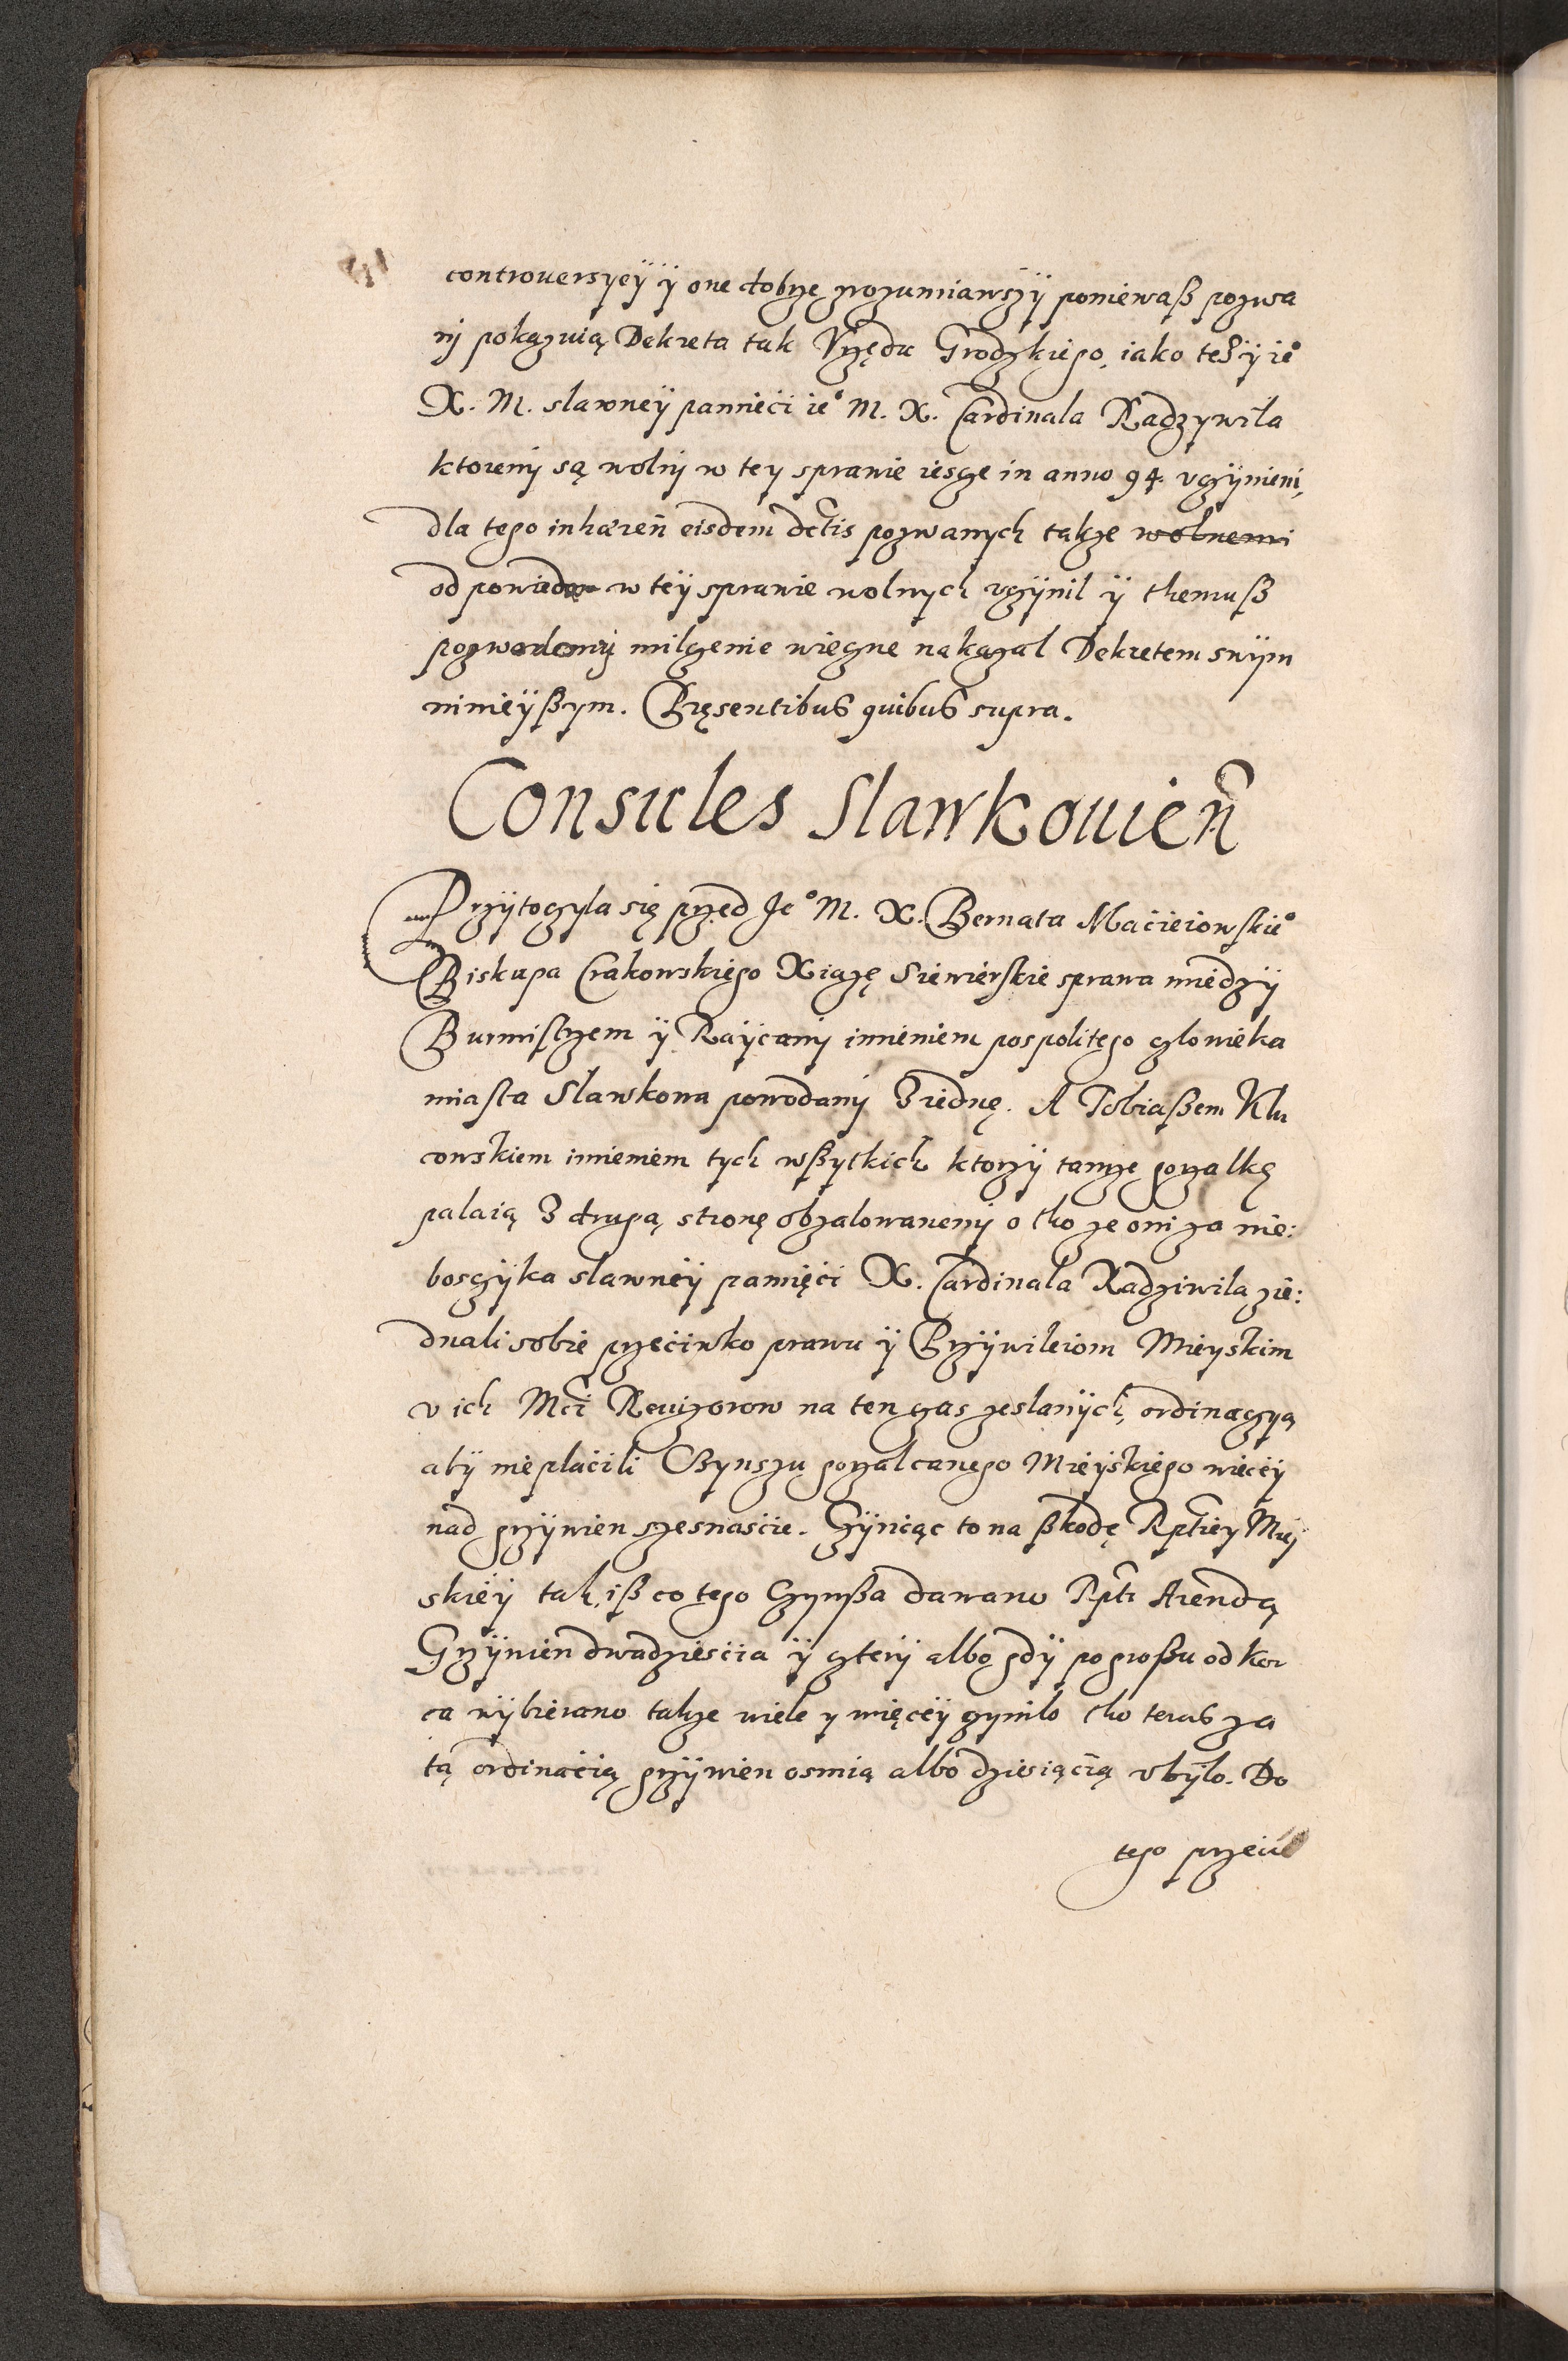 controuersyeÿ ÿ one dobrze zrozumiawszÿ poniewaß pozwa
nÿ pokazuią Dekreta tak Vrzędu Grodzkiego, iako też ÿ ie°
X. M. slawneÿ pamiėċi ie° M. X. Cardinala Radzywiła
ktoremÿ są wolnÿ w tey sprawie iescze in anno 94. vczÿnieni,
dla tego inhæreñ eisdem dctis pozwanych także wolnemi
od powiedu w teÿ sprawie wolnych vczÿnil ÿ themuß
powodowÿ milczenie wieczne nakazal Dekretem swÿm
ninieÿßym. Pręsentibus quibus supra.
Consules Slawkouieñ
Przÿtoczyla się przed Je° M. X. Bernata Maċieiowskie°
Biskupa Crakowskiego Xiążę Siewierskie sprawa miedzÿ
Burmistrzem ÿ Raÿcamÿ imieniem pospolitego człowieka
miasta Slawkowa powodamÿ Z iednę. A Tobiaßem Klu
cowskiem imieniem tych wßytkich ktorzÿ tamże gorzałkę
palaią Z drugą stronę obżalowanemÿ o tho że oni za nie:
bosczÿka slawneÿ pamięċi X. Cardinala Radziwila zie:
dnali sobie przeċiwko prawu ÿ Przÿwileiom Mieyskim
v ich Mci Reuizorow na ten czas zeslanÿch, ordinaczyą
abÿ nie plaċili Czynszu gorzalcanego Mieÿskiego wiecėÿ
nad grzÿwien szesnasċie. Czÿniąc to na ßkodę Rptiey Miey
skiėÿ tak, iß co tego Czynßa dawano Rpti Arendą
Grzÿwien dwadziesċia ÿ cztery albo gdÿ po großu od kor
ca wÿbierano także wiele y więcėÿ czynilo tho teras za
tą ordinaċią grzÿwien osmią albo dziesiąċią vbÿlo. Do
tego przeciw